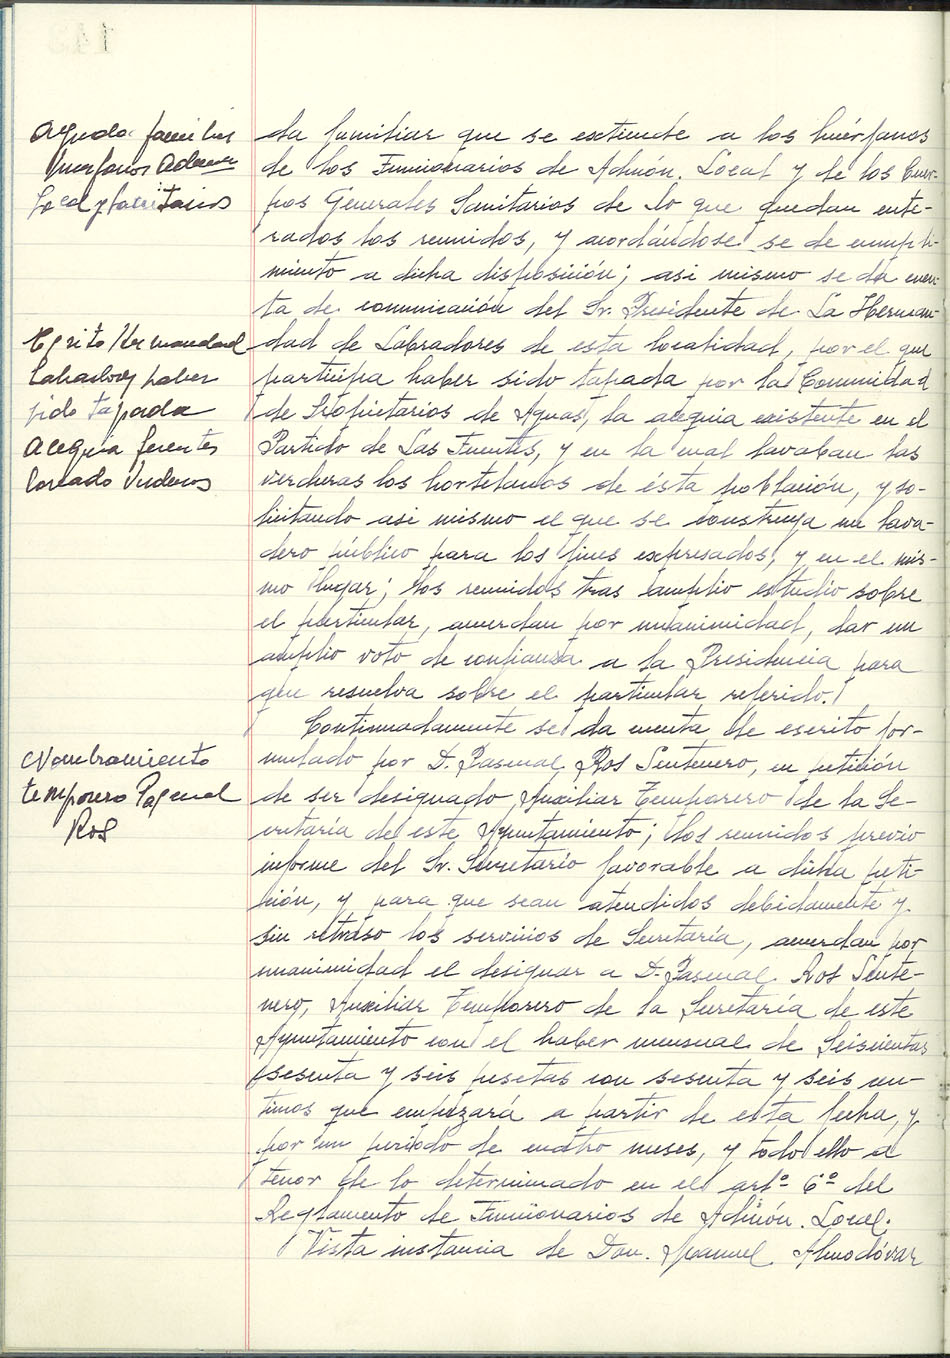 Ayuda familiar
huerfanos Admon
Local y Sanitarios
da familiar que se extiende a los huérfanos
de los Funcionarios de Admón. Local y de los Cuer-
pos Generales Sanitarios de lo que quedan ente-
rados los reunidos, y acordándose se de cumpli-
miento a dicha disposición; asi mismo se da cuen-
ta de comunicación del Sr. Presidente de La Herman-
Escrito Hermandad
Labradores haber
sido tapada
acequia fuentes
lavado Verduras
dad de Labradores de esta localidad, por el que
participa haber sido tapada por la Comunidad
de Propietarios de Aguas, la acequia existente en el
Partido de Las Fuentes, y en la cual lavaban las
verduras los hortelanos de ésta población, y so-
licitando asi mismo el que se construya un lava-
dero público para los fines expresados, y en el mis-
mo lugar; los reunidos tras amplio estudio sobre
el particular, acuerdan por unanimidad, dar un
amplio voto de confianza a la Presidencia para
que resuelva sobre el particular referido.
Continuadamente se da cuenta de escrito for-
Nombramiento
temporero Pascual
Ros
mulado por D. Pascual Ros Sentenero, en petición
de ser designado Auxiliar Temporero de la Se-
cretaría de este Ayuntamiento; los reunidos previo
informe del Sr. Secretario favorable a dicha peti-
ción, y para que sean atendidos debidamente y
sin retraso los servicios de Secretaría, acuerdan por
unanimidad el designar a D. Pascual Ros Sente-
nero, Auxiliar Temporero de la Secretaría de este
Ayuntamiento con el haber mensual de Seiscientas
sesenta y seis pesetas con sesenta y seis cen-
timos que empezará a partir de esta fecha, y
por un periodo de cuatro meses, y todo ello a
tenor de lo determinado en el artº 6º del
Reglamento de Funcionarios de Admón. Local.
Vista instancia de Don. Manuel Almodóvar